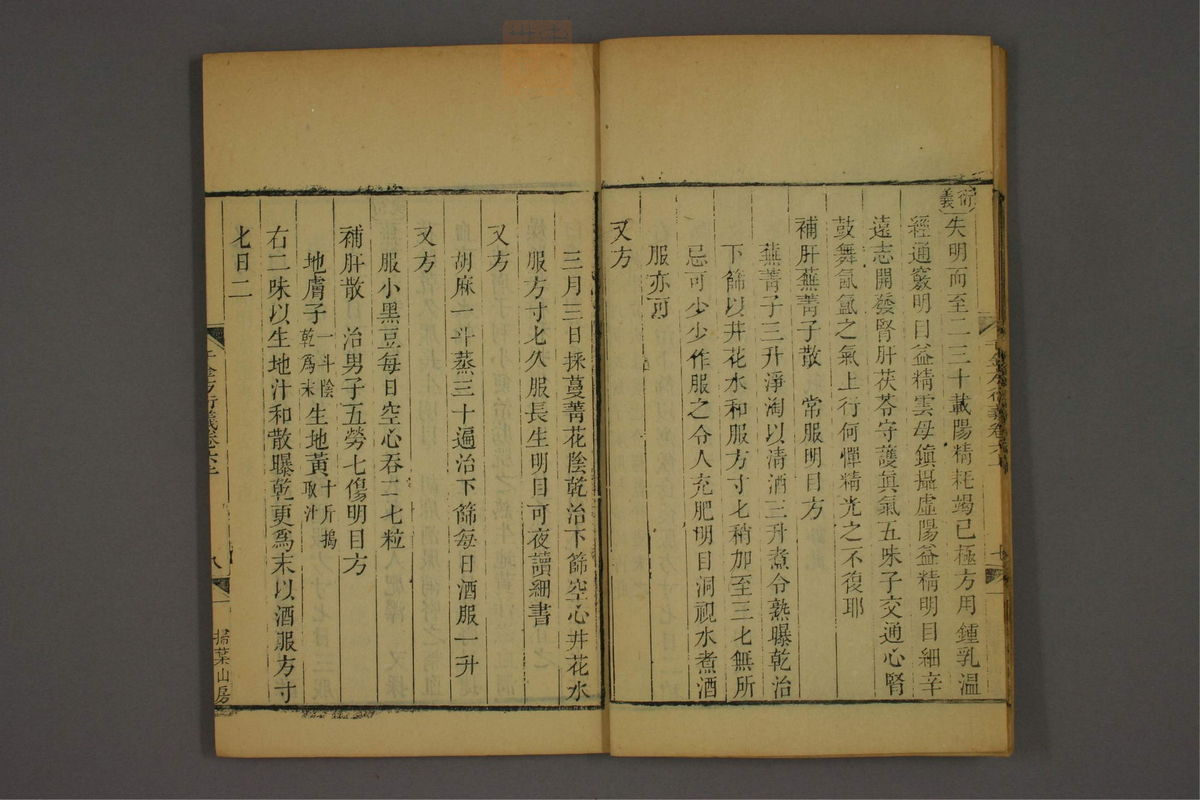 衍義
失明而至二三十載陽精耗竭已極方用鍾乳溫
經通竅明目益精雲母鎮攝虛陽益精明目細辛
遠志開發腎肝茯苓守護眞氣五味子交通心腎
鼓舞氤氳之氣上行何憚精光之不復耶
補肝蕪菁子散 常服明目方
蕪菁子三升淨淘以清酒三升煮令熟曝乾治
下篩以井花水和服方寸匕稍加至三匕無所
忌可少少作服之令人充肥明目洞視水煮酒
服亦可
又方
三月三日採蔓菁花陰乾治下篩空心井花水
服方寸匕久服長生明目可夜讀細書
又方
胡麻一斗蒸三十遍治下篩每日酒服一升
又方
服小黑豆每日空心吞二七粒
補肝散 治男子五勞七傷明目方
地膚子一斗陰乾爲末生地黃十斤搗取汁
右二味以生地汁和散曝乾更爲末以酒服方寸
匕日二
千金方衍義卷六上 八 掃葉山房